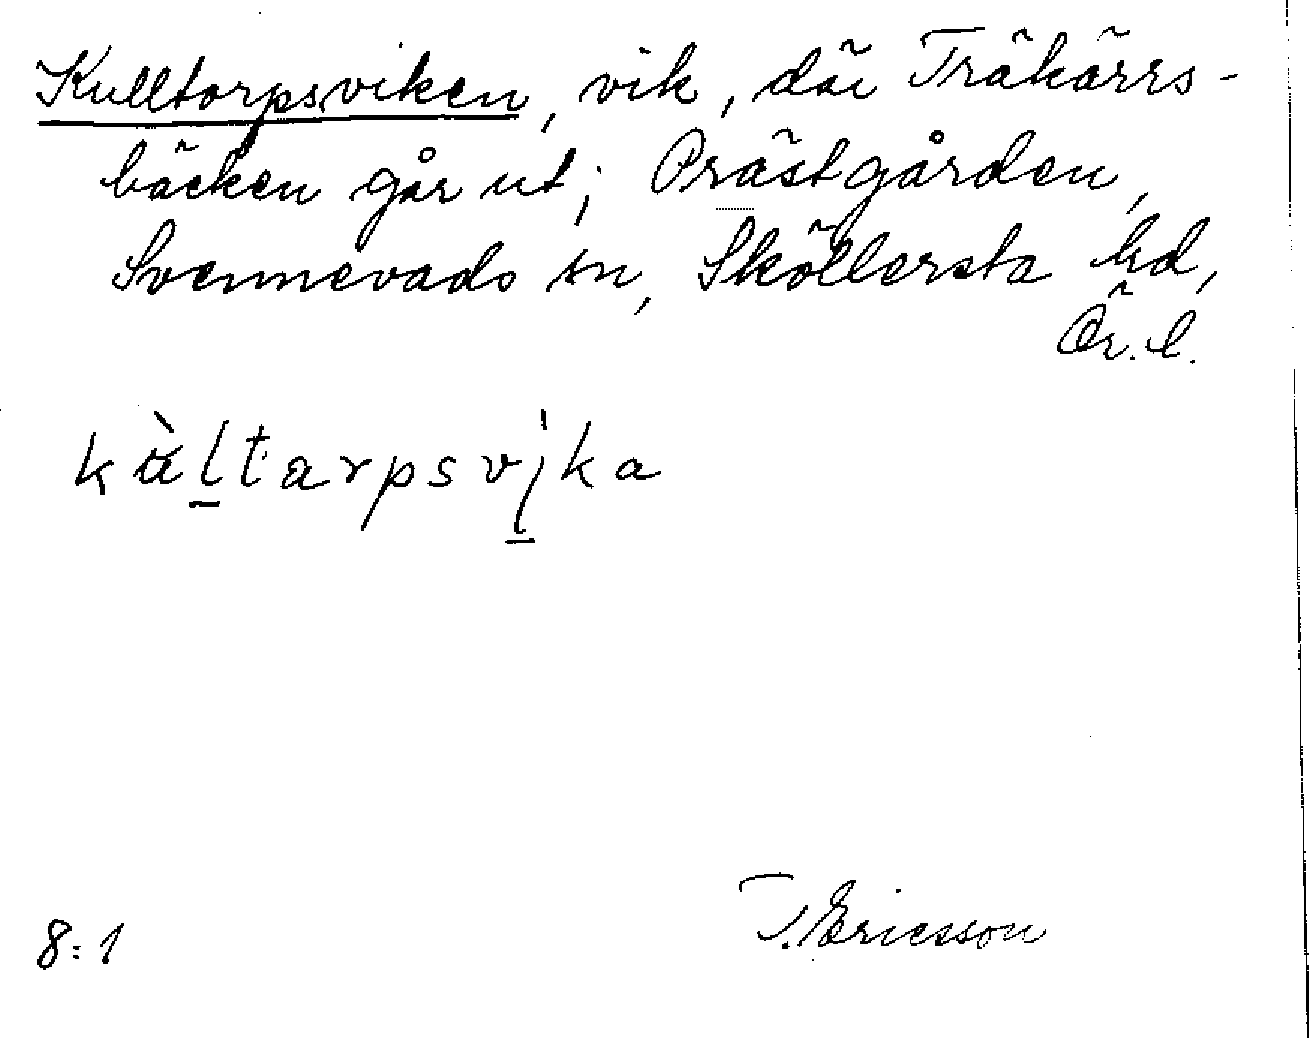 Kulltorpsviken, vik, där Träkärrs-
bäcken går ut; Prästgården,
Svennevads sn, Sköllersta hd,
Ör. l.
kàl̲tarpsvi̲ka
8:1
T. Ericsson